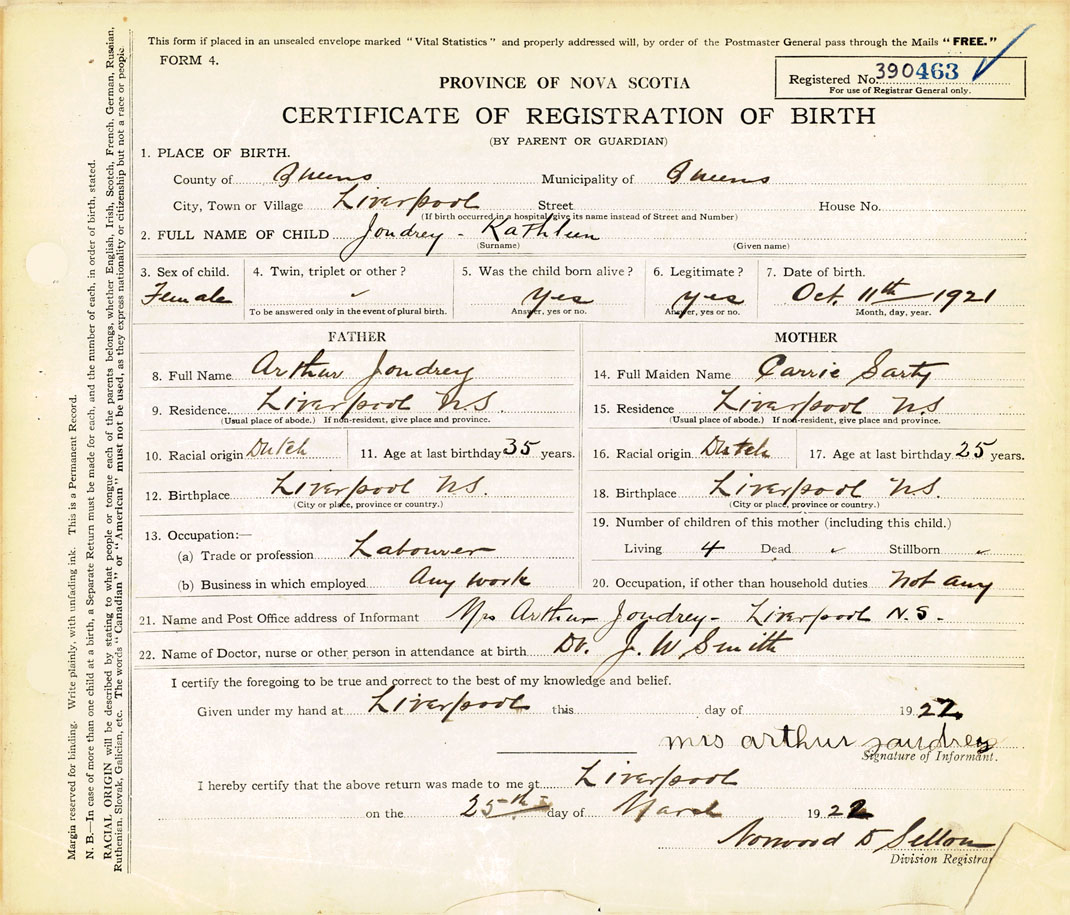 This form if placed in an unsealed envelope marked "Vital Statistics" and properly addressed will, by order of the Postmaster General pass through the Mails "FREE."
FORM 4.
Registered No. 390463
For use of Registrar General only.
PROVINCE OF NOVA SCOTIA
CERTIFICATE OF REGISTRATION OF BIRTH
(BY PARENT OR GUARDIAN)
1. PLACE OF BIRTH.
County of Queens Municipality of Queens
City, Town or Village Liverpool Street House No.
(If birth occurred in a hospital, give its name instead of Street and Number)
2. FULL NAME OF CHILD Joudrey - Kathleen
(Surname) (Given name)
3. Sex of child. 4. Twin, triplet or other? 5. Was the child born alive? 6. Legitimate? 7. Date of birth.
Female Yes yes Oct. 11th 1921
To be answered only in the event of plural birth. Answer, yes or no. Answer, yes or no. Month, day, year.
FATHER MOTHER
8. Full Name Arthur Joudrey 14. Full Maiden Name Carrie Sarty
9. Residence Liverpool N.S. 15. Residence Liverpool N.S
(Usual place of abode.) If non-resident, give place and province. (Usual place of abode.) If non-resident, give place and province.
10. Racial origin Dutch 11. Age at last birthday 35 years. 16. Racial origin Dutch 17. Age at last birthday 25 years.
12. Birthplace Liverpool N.S. 18. Birthplace Liverpool N.S.
(City or place, province or country.) (City or place, province or country.)
13. Occupation:— 19. Number of children of this mother (including this child.)
(a) Trade or profession Labourer Living 4 Dead Stillborn
(b) Business in which employed Any work 20. Occupation, if other than household duties Not any
21. Name and Post Office address of Informant Mrs Arthur Joudrey - Liverpool N.S.
22. Name of Doctor, nurse or other person in attendance at birth Dr. J. W Smith
I certify the foregoing to be true and correct to the best of my knowledge and belief.
Given under my hand at Liverpool this day of 1922
mrs arthur joudrey
Signature of Informant.
I hereby certify that the above return was made to me at Liverpool
on the 25th day of March 1922
Norwood
Division Registrar
Margin reserved for binding. Write plainly, with unfading ink. This is a Permanent Record.
N. B.—In case of more than one child at a birth, a Separate Return must be made for each, and the number of each, in order of birth, stated.
RACIAL ORIGIN will be described by stating to what people or tongue each of the parents belongs, whether English, Irish, Scotch, French, German, Russian,
Ruthenian, Slovak, Galician, etc. The words "Canadian" or "American" must not be used, as they express nationality or citizenship but not a race or people.